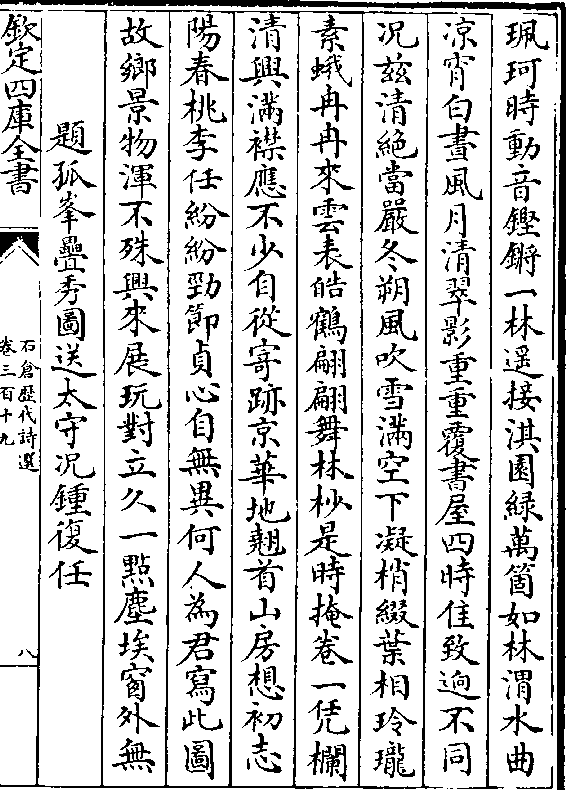 珮珂時動音鏗鏘一林遥接淇園緑萬箇如林渭水曲
凉宵白晝風月清翠影重重覆書屋四時佳致逈不同
况兹清絶當嚴冬朔風吹雪滿空下凝梢綴葉相玲瓏
素娥冉冉來雲表皓鶴翩翩舞林杪是時掩卷一凭欄
清興滿襟應不少自從寄跡京華地翹首山房想初志
陽春桃李任紛紛勁節貞心自無異何人為君寫此圖
故鄉景物渾不殊興來展玩對立久一點塵埃窗外無
題孤峯疊秀圖送太守况鍾復任
欽定四庫全書
石倉歴代詩選
卷三百十九
八